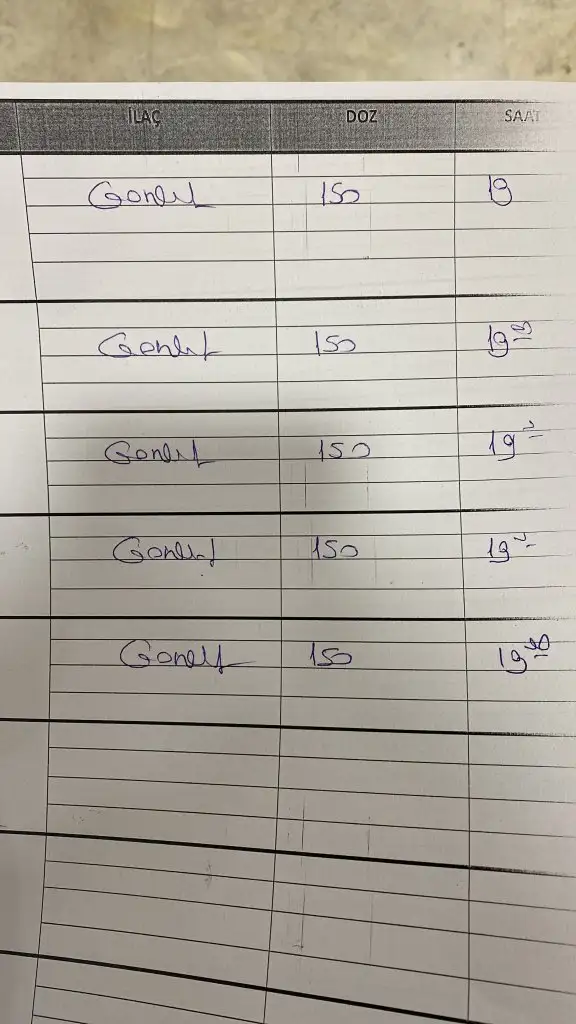 İLAÇ DOZ SAAT
Gonal f 150 19
Gonal f 150 19
Gonal f 150 19
Gonal f 150 19
Gonal f 150 19